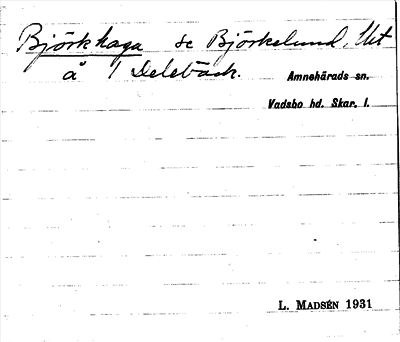 Björkhaga se Björkelund, Ut
å 1 Delebäck.
Amnehärads sn.
Vadsbo hd. Skar. l.
L. MADSÉN 1931